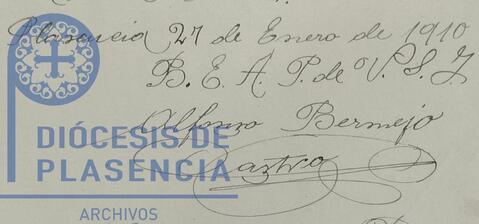 Plasencia 27 de Enero de 1910
B. E. A. P. de V. S. I.
Alfonzo Bermejo
Caztro
DIÓCESIS DE
PLASENCIA
ARCHIVOS